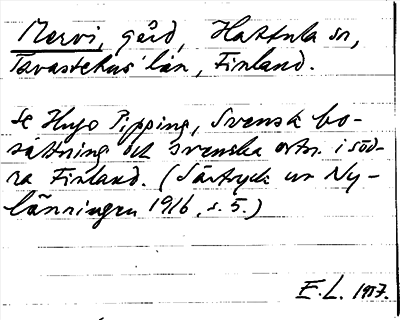 Mervi, gård, Hattula sn,
Tavastehus' län, Finland.
Se Hugo Pipping, Svensk bo-
sättning och svenska ortn. i söd-
ra Finland. (Särtryck ur Ny-
länningen 1916, s. 5.)
E.L. 1957.